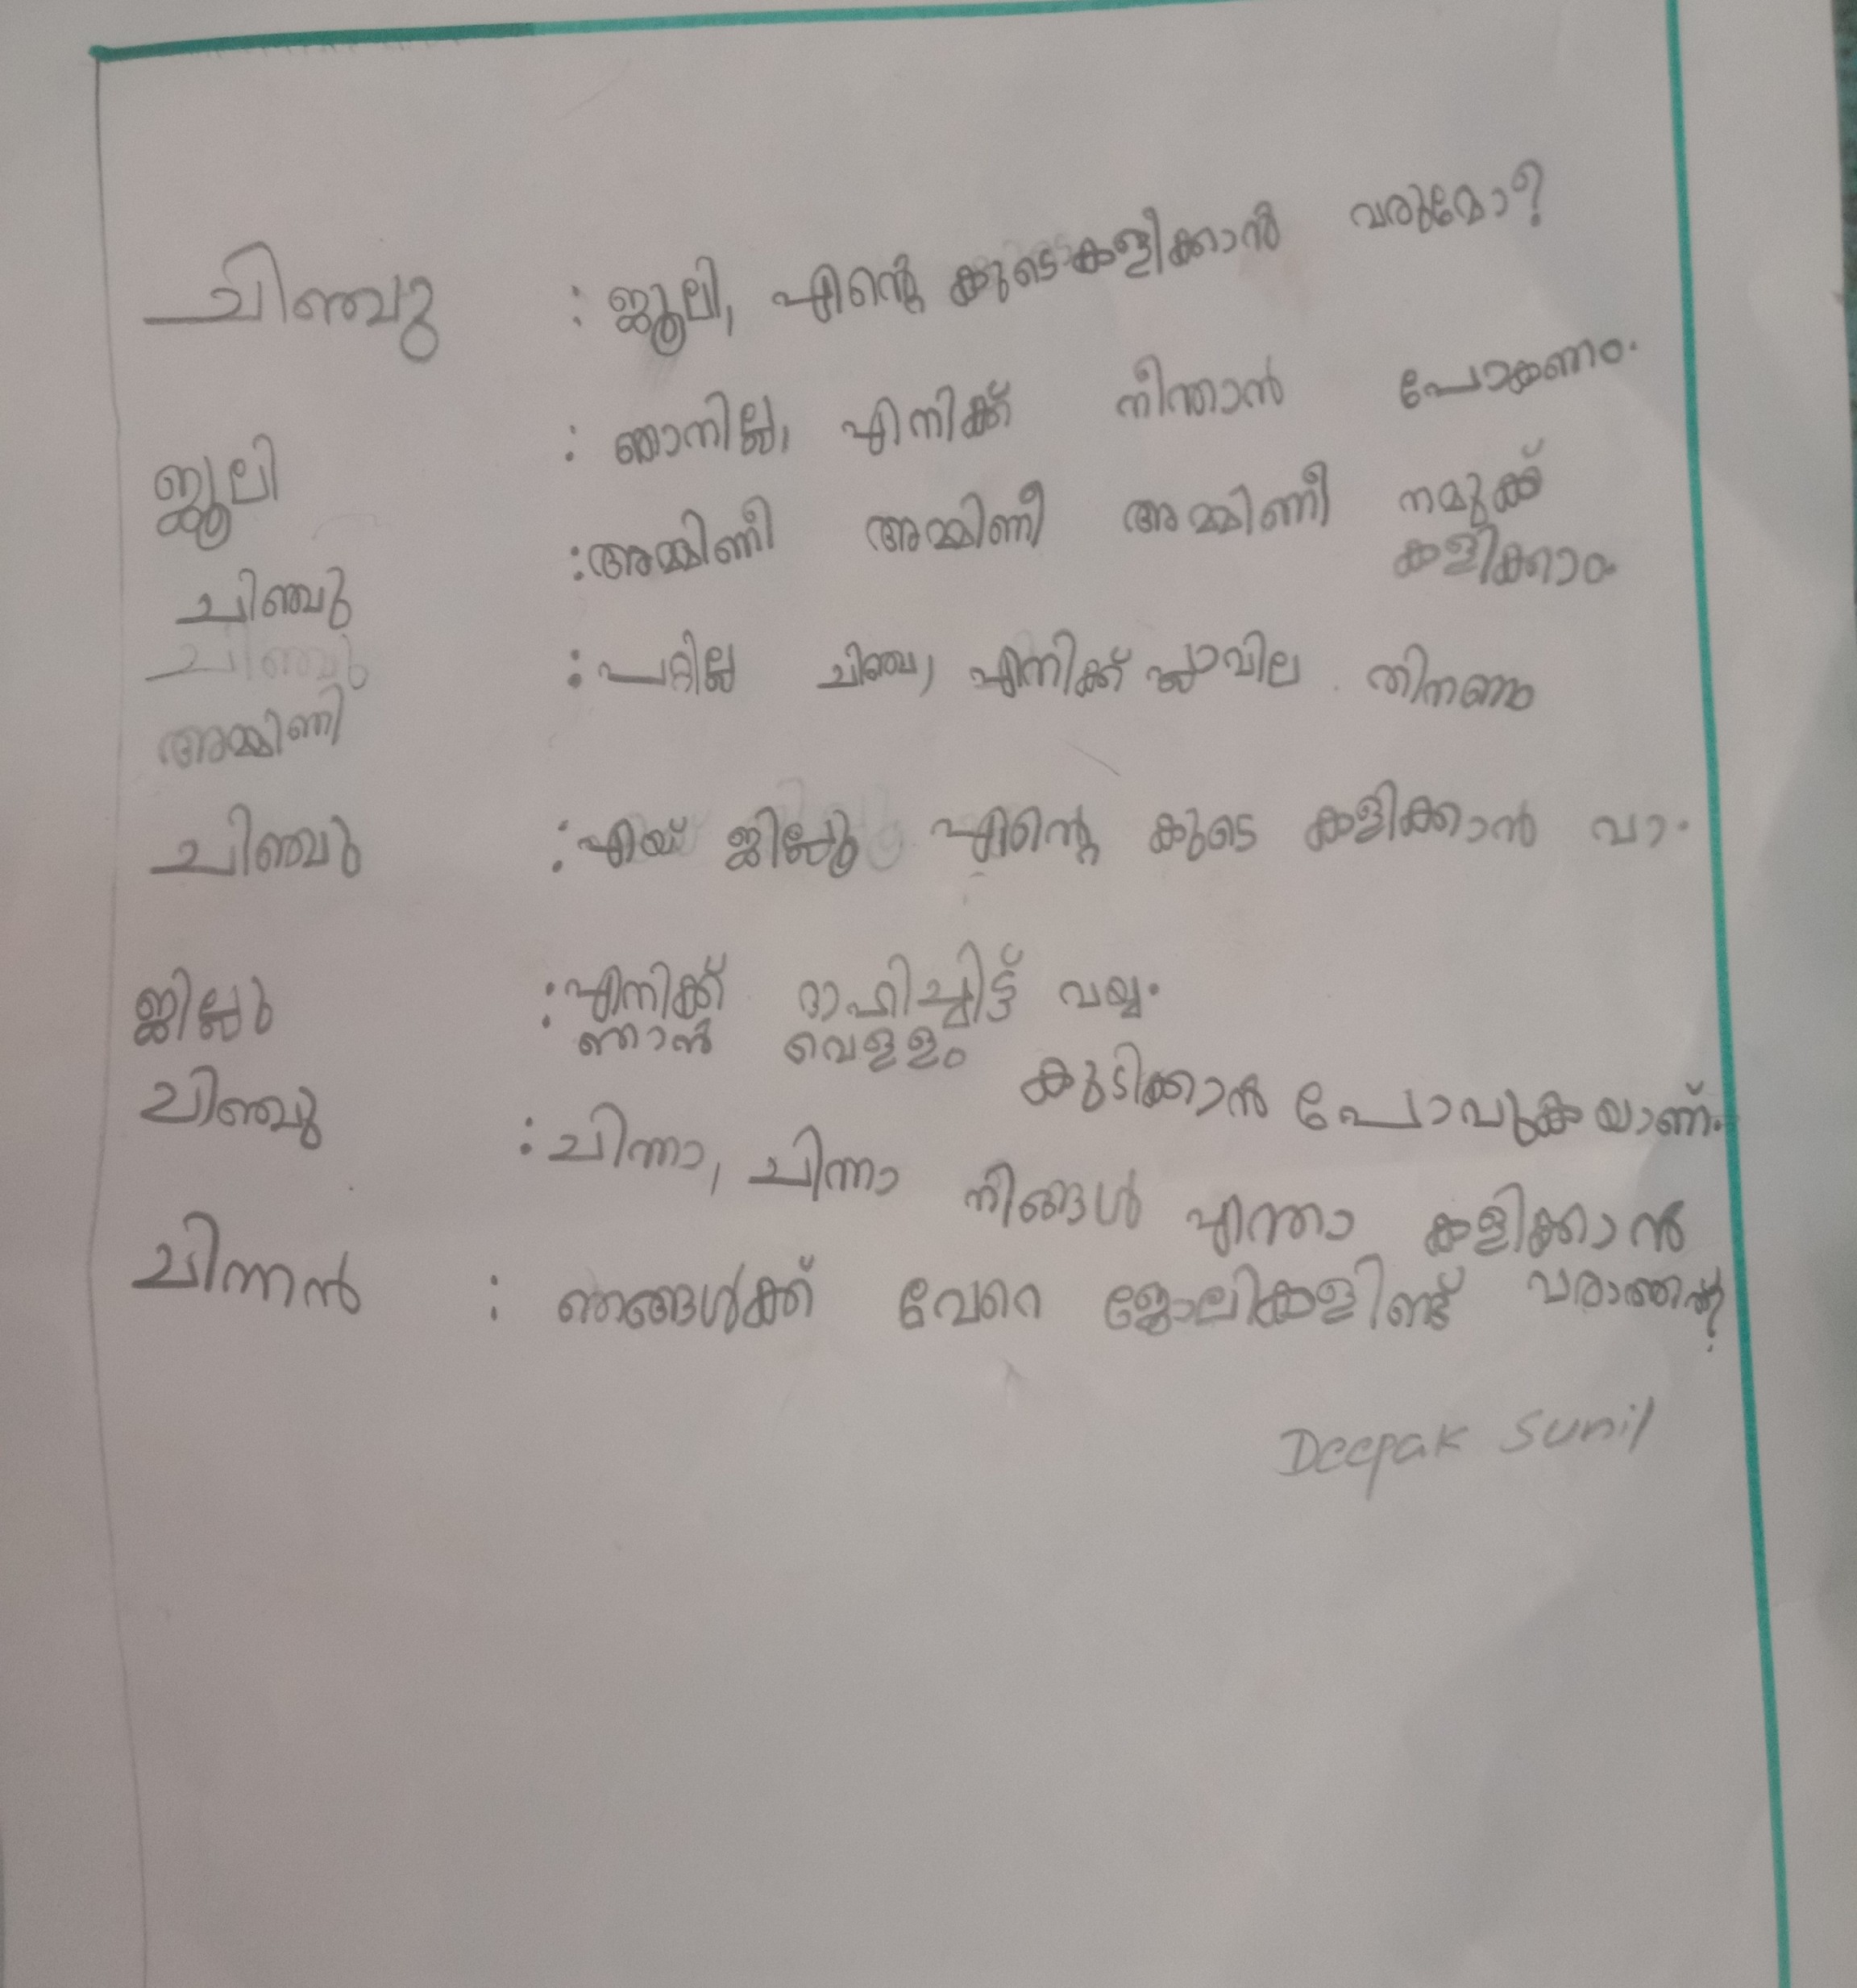 ചിഞ്ചു : ജൂലി, എന്റെ കുടെ കളിക്കാൻ വരുമോ?
ജൂലി : ഞാനില്ല, എനിക്ക് നീന്താൻ പോകണം.
ചിഞ്ചു : അമ്മിണീ അമ്മിണീ അമ്മിണീ നമുക്ക്
കളിക്കാം.
ചിഞ്ചു
അമ്മിണി : പറ്റില്ല ചിഞ്ചു, എനിക്ക് പ്ലാവില തിനണം
ചിഞ്ചു : എയ് ജില്ലു എന്റെ കുടെ കളിക്കാൻ വാ.
ജില്ലു : എനിക്ക് ദാഹിച്ചിട്ട് വയ്യ.
ഞാൻ വെള്ളം കുടിക്കാൻ പോവുകയാണ്.
ചിഞ്ചു : ചിന്നാ, ചിന്നാ നിങ്ങൾ എന്താ കളിക്കാൻ
വരാത്തത്?
ചിന്നൻ : ഞങ്ങൾക്ക് വേറെ ജോലികളിണ്ട്
Deepak Sunil